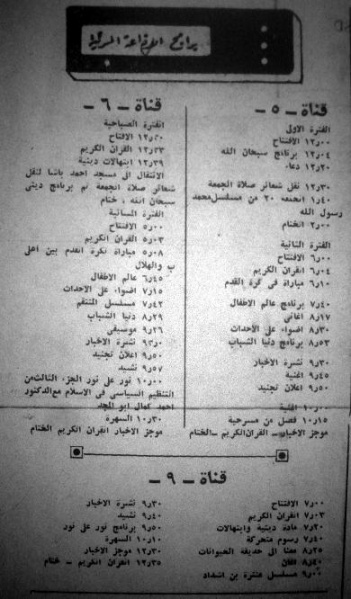 برامج الإذاعة المرئية
قناة - ٥ -
الفترة الاولى
١٢٫٠٠ الافتتاح
١٢٫٠٤ برنامج سبحان الله
١٢٫٢٠ دعاء
١٢٫٣٠ نقل شعائر صلاة الجمعة
١٫٤٠ الحلقة ٢٠ من مسلسل محمد
رسول الله
٢٫٠٠ الختام
الفترة الثانية
٦٫٠٠ الافتتاح
٦٫٠٤ القرآن الكريم
٦٫١٠ مباراة في كرة القدم
٧٫٤٠ برنامج عالم الاطفال
٨٫١٧ اغاني
٨٫٣٠ اضواء على الأحداث
٨٫٥٣ برنامج دنيا الشباب
٩٫٣٠ نشرة الاخبار
٩٫٤٥ اغنية
٩٫٥٠ اعلان تجنيد
١٠٫٠٠ اغنية
١٠٫١٥ فصل من مسرحية
موجز الاخبار - القرآن الكريم - الختام
قناة - ٦ -
الفترة الصباحية
الافتتاح
١٢٫٣٣ القرآن الكريم
١٢٫٣٩ ابتهالات دينية
الانتقال الى مسجد احمد باشا لنقل
شعائر صلاة الجمعة ثم برنامج ديني
سبحان الله ، ختام
الفترة المسائية
٥٫٠٠ الافتتاح
٥٫٠٣ القرآن الكريم
٥٫٠٨ مباراة لكرة القدم بين اهلي
ب والهلال
٦٫٤٥ عالم الاطفال
٧٫١٥ اضواء على الأحداث
٧٫٤٢ مسلسل المنتقم
٨٫٢٩ دنيا الشباب
٩٫٢٦ موسيقى
نشرة الاخبار
٩٫٥٠ اعلان تجنيد
٩٫٥٧ نشيد
١٠٫٠٠ نور على نور الجزء الثالث من
التنظيم السياسي في الاسلام مع الدكتور
احمد كمال ابو المجد
١٠٫٣٠ السهرة
موجز الاخبار القرآن الكريم الختام
قناة - ٩ -
٧٫٠٠ الافتتاح
٧٫٠٣ القرآن الكريم
٧٫٢٠ مادة دينية وابتهالات
٧٫٤٠ رسوم متحركة
٨٫٢٥ معنا الى حديقة الحيوانات
٨٫٤٠ اغان
٩٫٠٠ مسلسل عنترة بن شداد
٩٫٣٠ نشرة الاخبار
٩٫٤٠ نشيد
٩٫٥٠ برنامج نور على نور
١٠٫١٠ السهرة
١٢٫٣٠ موجز الاخبار
١٢٫٣٥ القرآن الكريم - ختام